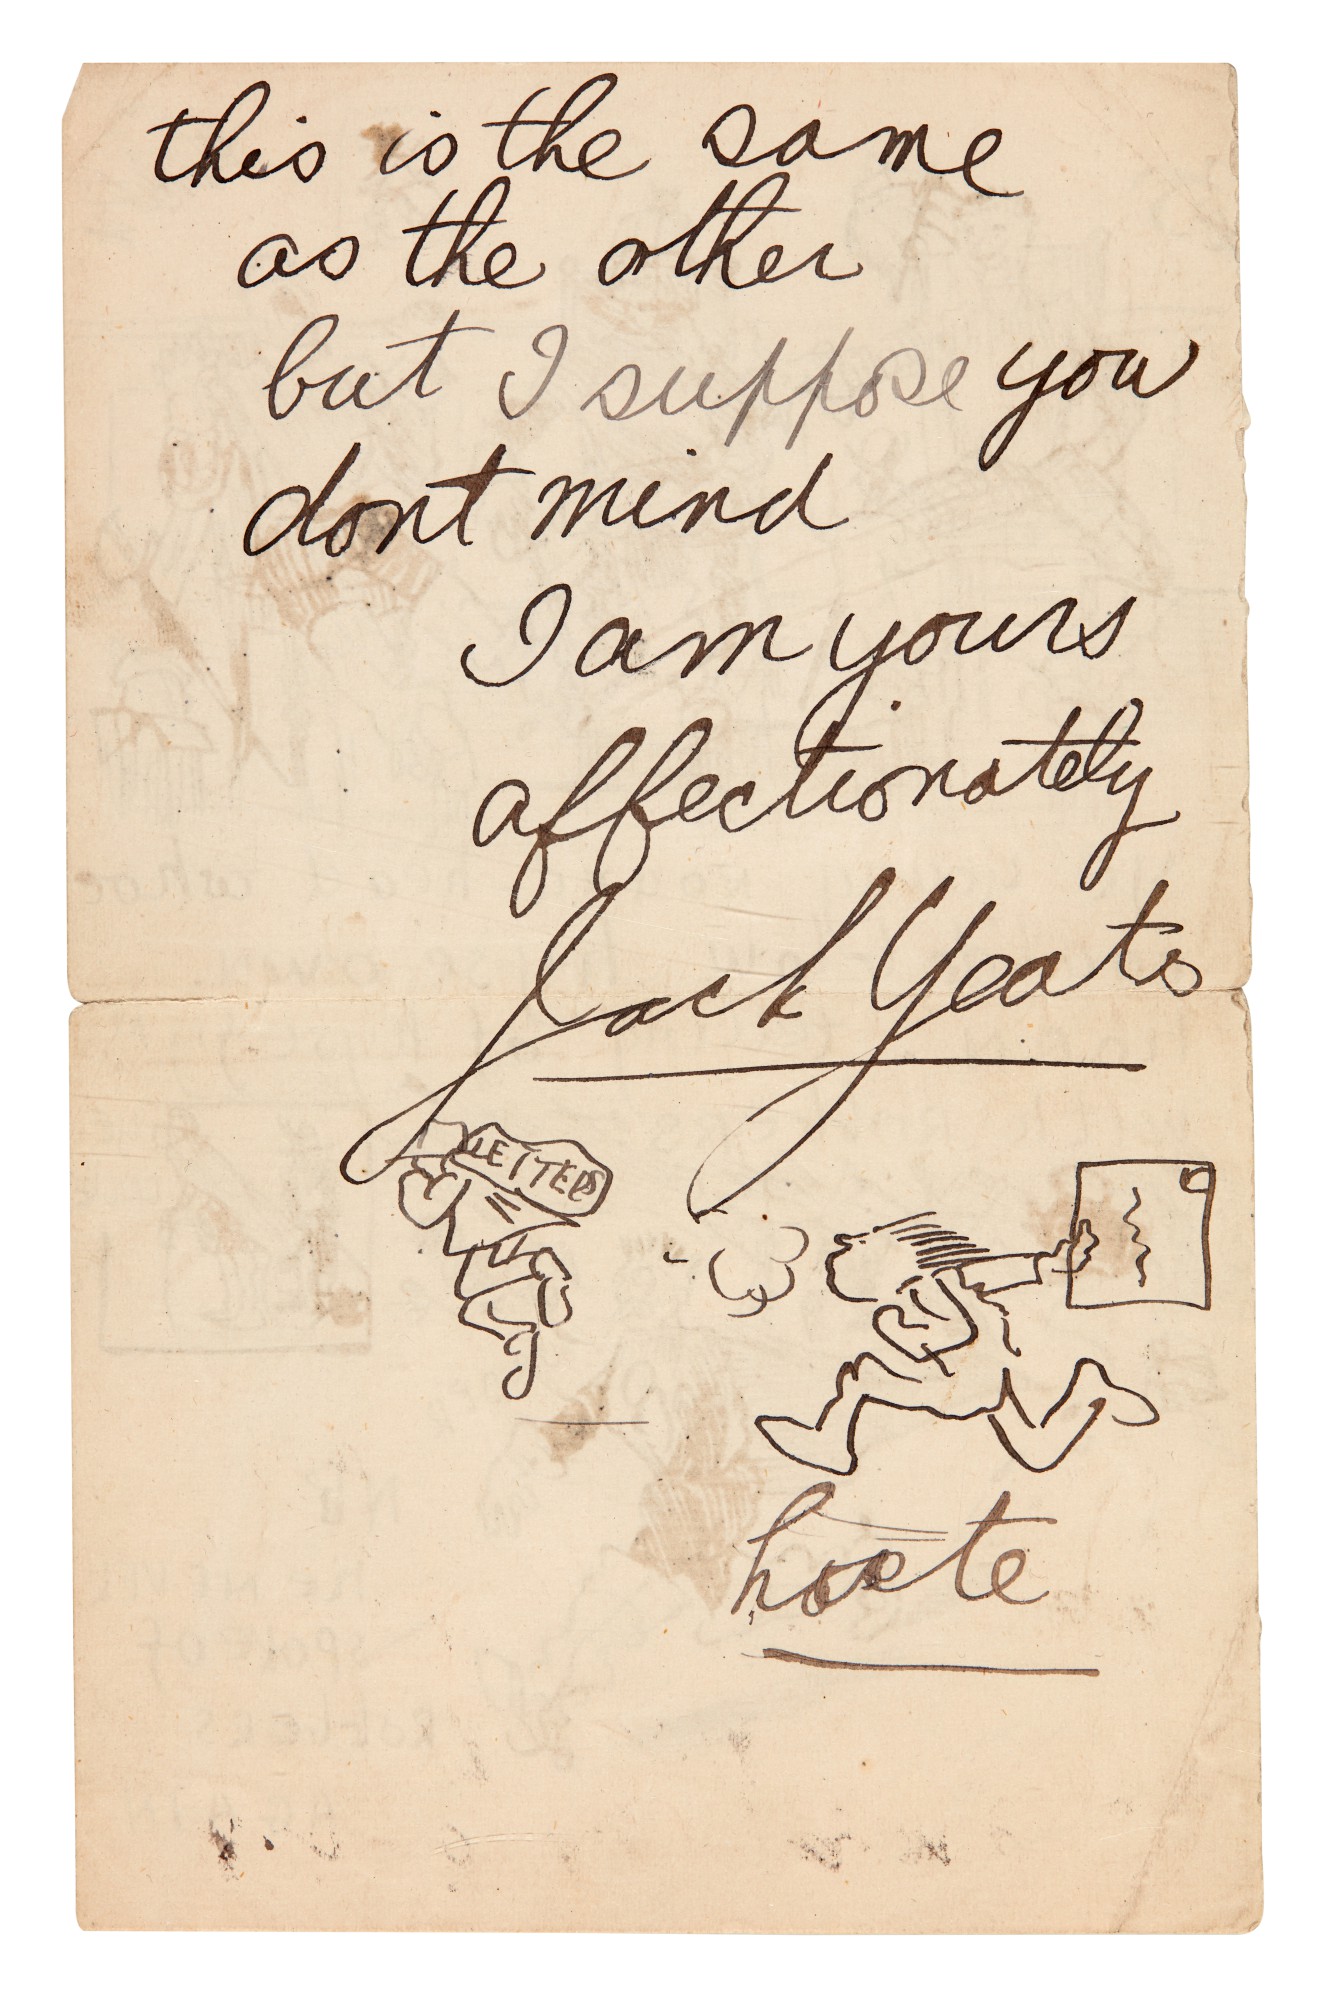 this is the same
as the other
but I suppose you
dont mind
I am yours
affectionately
Jack Yeats
LETTERS